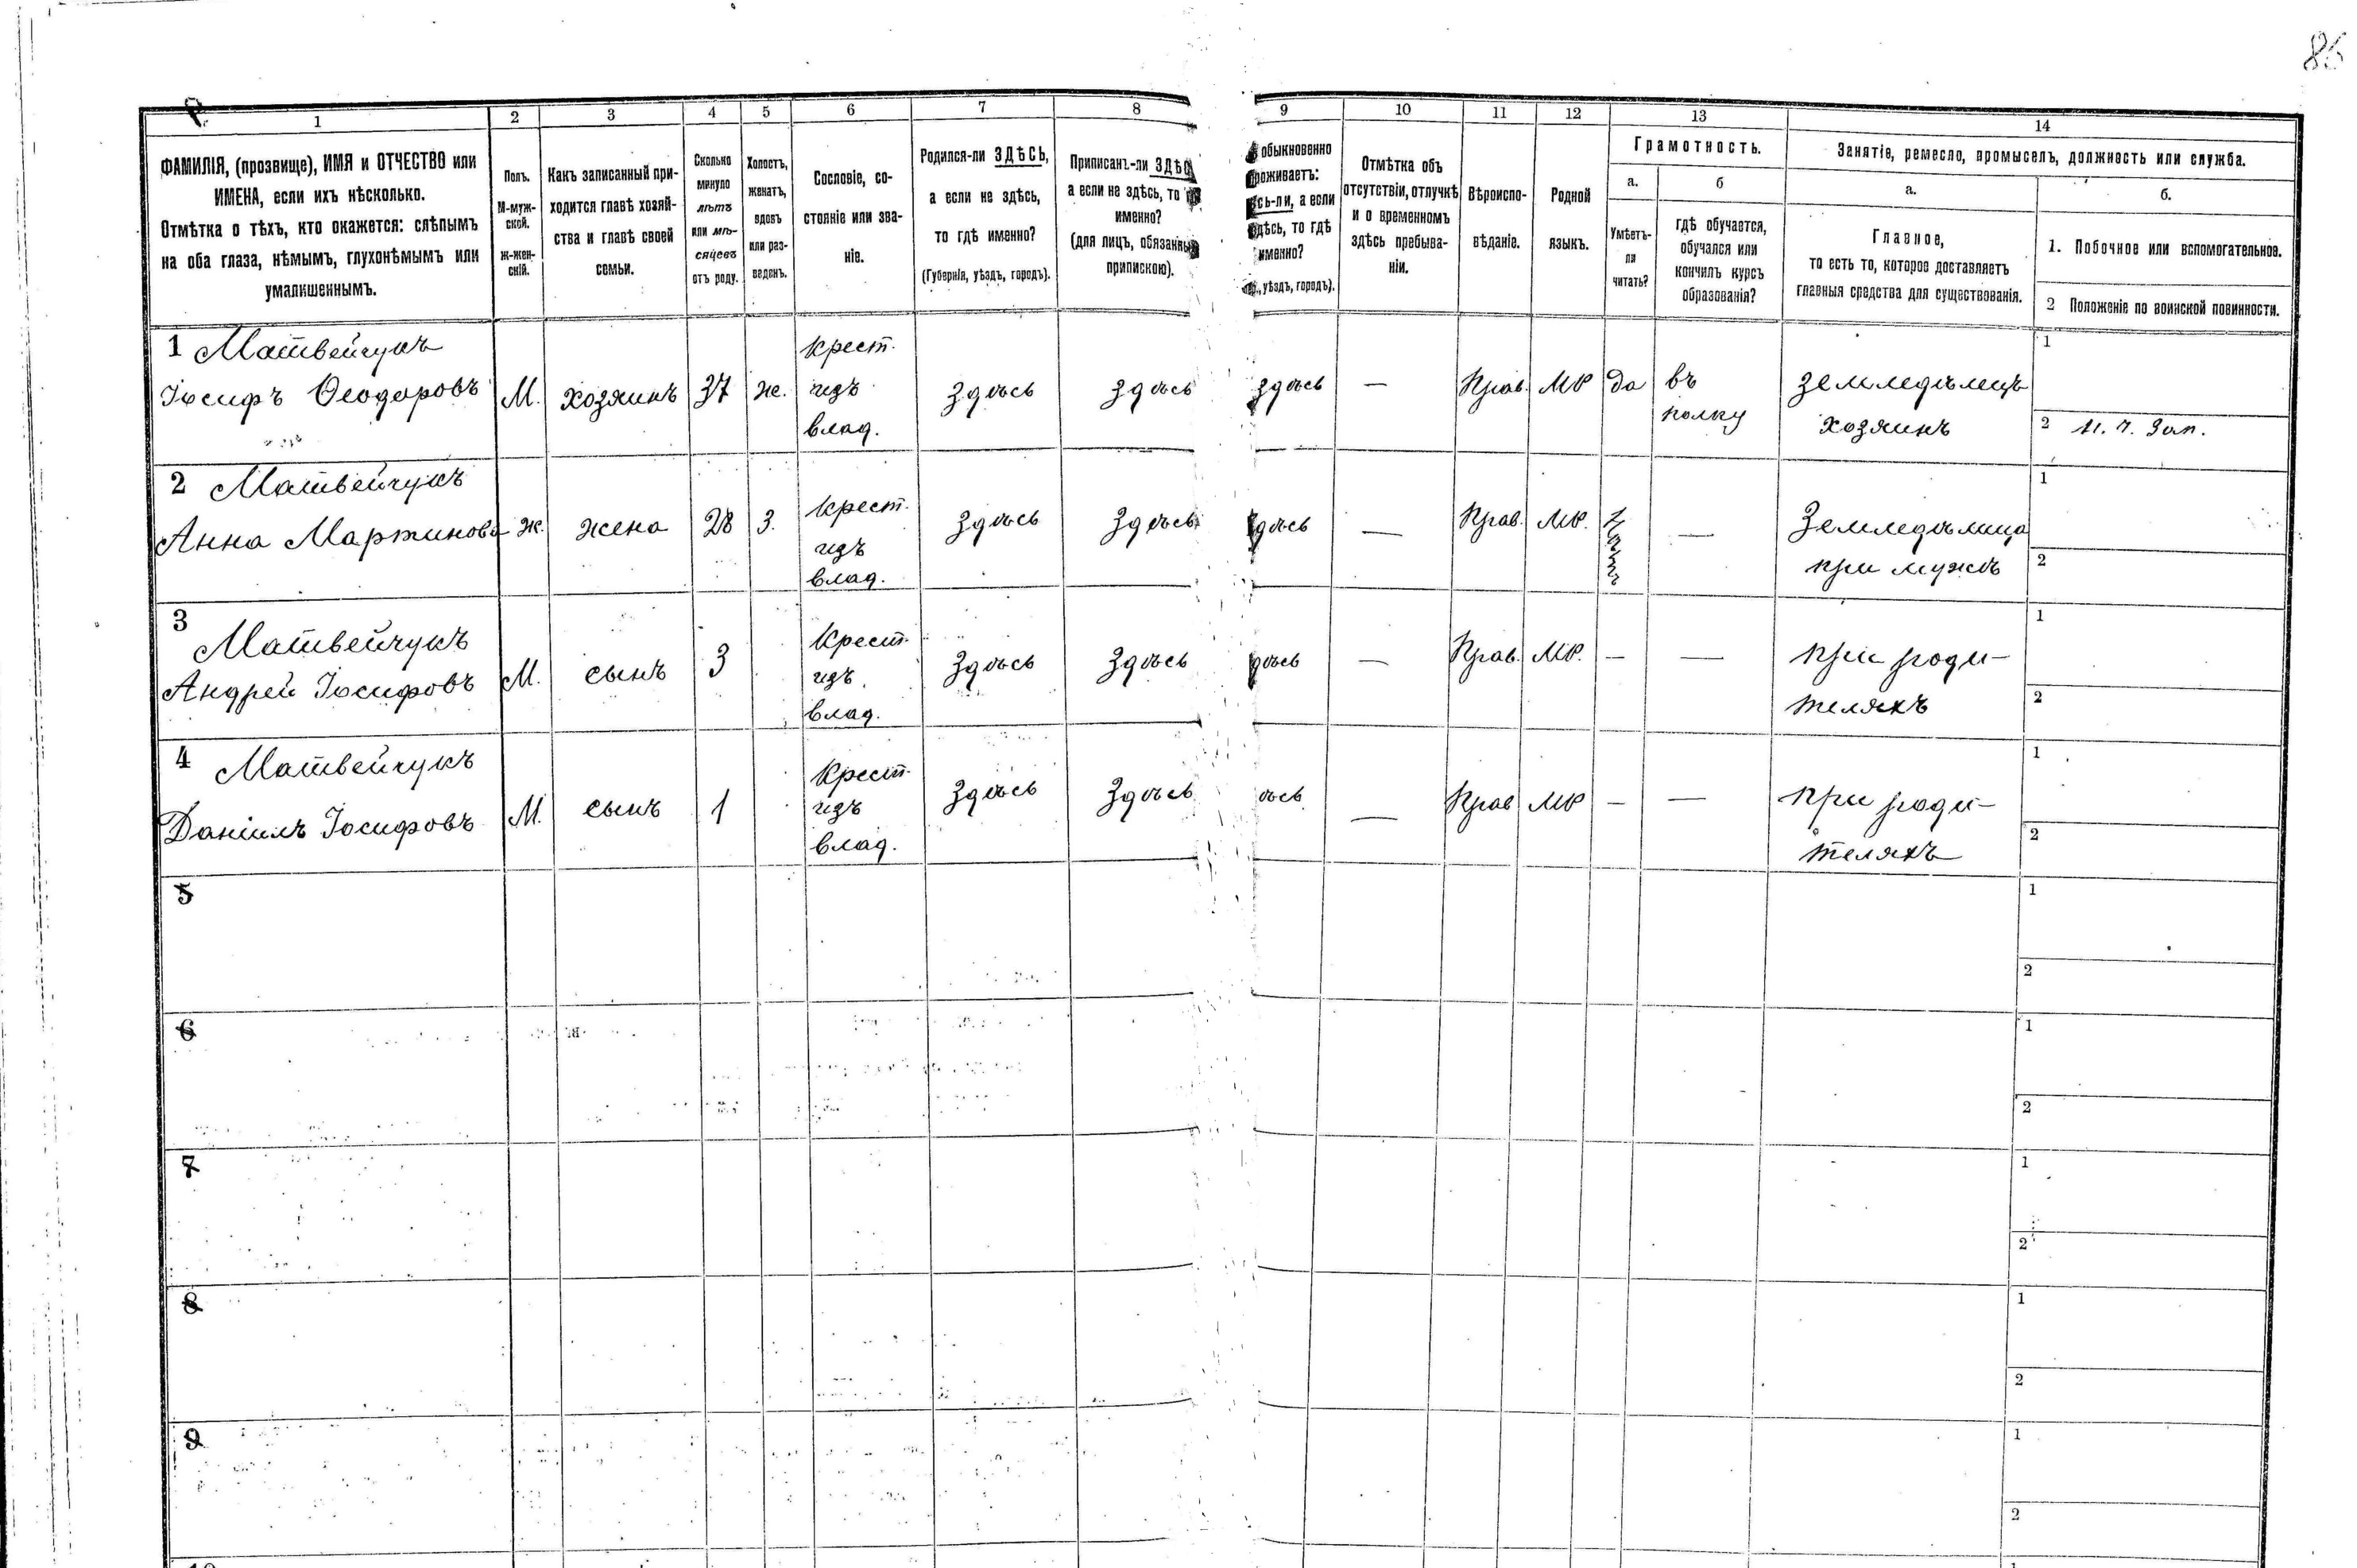 85
1 2 3 4 5 6 7 8 9 10 11 12 13 14
ФАМИЛІЯ, (прозвище), ИМЯ и ОТЧЕСТВО или
ИМЕНА, если ихъ нѣсколько.
Отмѣтка о тѣхъ, кто окажется: слѣпымъ
на оба глаза, нѣмымъ, глухонѣмымъ или
умалишеннымъ.
Полъ.
М-муж-
ской.
Ж-жен-
скій.
Какъ записанный при-
ходится главѣ хозяй-
ства и главѣ своей
семьи.
Сколько
минуло
лѣтъ
или мѣ-
сяцевъ
отъ роду.
Холостъ,
женатъ,
вдовъ
или раз-
веденъ.
Сословіе, со-
стояніе или зва-
ніе.
Родился-ли ЗДѢСЬ,
а если не здѣсь,
то гдѣ именно?
(Губернія, уѣздъ, городъ).
Приписанъ-ли
а если не здѣсь, то
именно?
(для лицъ, обязанны
припискою).
обыкновенно
роживаетъ:
сь-ли, а если
дѣсь, то гдѣ
именно?
уѣздъ, городъ).
Отмѣтка объ
отсутствіи, отлучкѣ
и о временномъ
здѣсь пребыва-
ніи.
Вѣроиспо-
вѣданіе.
Родной
языкъ.
Грамотность.
а.
Умѣетъ-
ли
читать?
б
гдѣ обучается,
обучался или
кончилъ курсъ
образованія?
Занятіе, ремесло, промыселъ, должность или служба.
а.
Главное,
то есть то, которое доставляетъ
главныя средства для существованія.
б.
1. Побочное или вспомогательное.
2 Положеніе по воинской повинности.
1 Матвейчукъ крест. 1
Іосифъ Ѳеодоровъ М. хозяинъ 37 ж. изъ здѣсь здѣсь здѣсь — Прав. МР да въ земледѣлецъ
влад. полку хозяинъ 2 н. ч. Зап.
2 Матвейчукъ крест. 1
Анна Мартинова ж. жена 28 З. изъ здѣсь здѣсь здѣсь — Прав. МР. — Земледѣлица
влад. при мужѣ 2
3 Матвейчукъ крест. 1
Андрей Іосифовъ М. сынъ 3 изъ здѣсь здѣсь дѣсь — Прав. МР. — — при роди-
влад. теляхъ 2
4 Матвейчукъ крест. 1
Даніилъ Іосифовъ М. сынъ 1 изъ здѣсь здѣсь ѣсь — Прав МР — — при роди-
влад. теляхъ 2
5 1
2
6 1
2
7 1
2
8 1
2
9 1
2